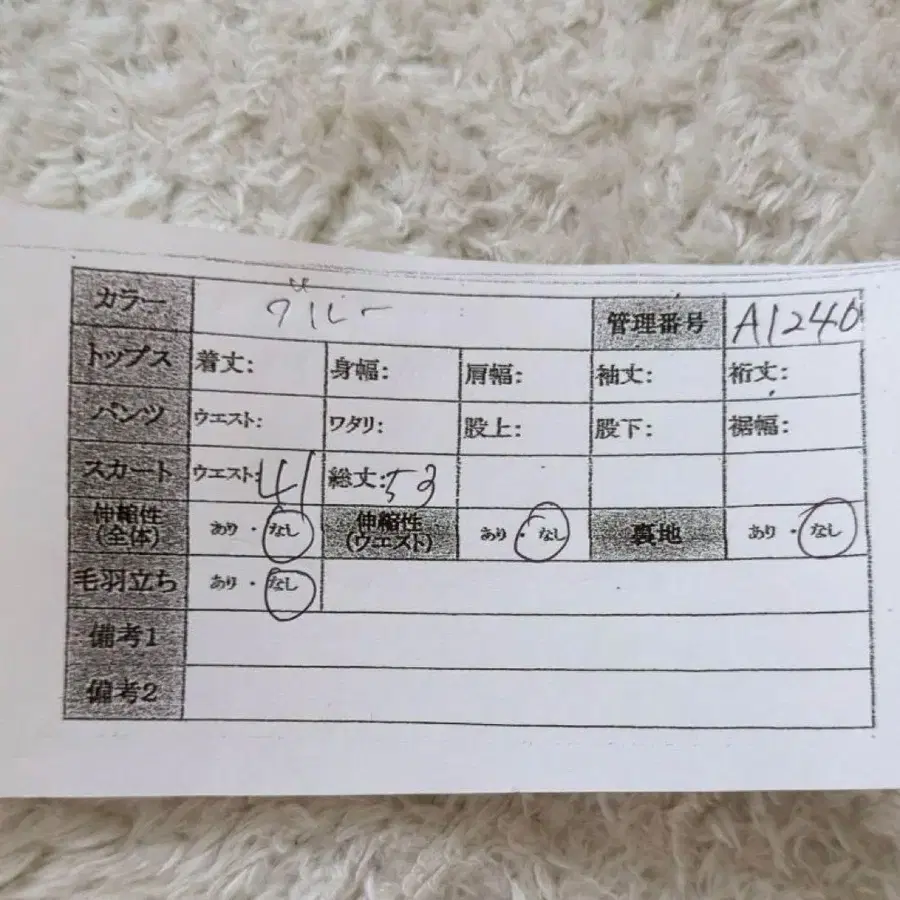 カラー ブルー 管理番号 A1240
トップス 着丈: 身幅: 肩幅: 袖丈: 裄丈:
パンツ ウエスト: ワタリ: 股上: 股下: 裾幅:
スカート ウエスト: 41 総丈: 53
伸縮性(全体) あり・なし 伸縮性(ウエスト) あり・なし 裏地 あり・なし
毛羽立ち あり・なし
備考1
備考2